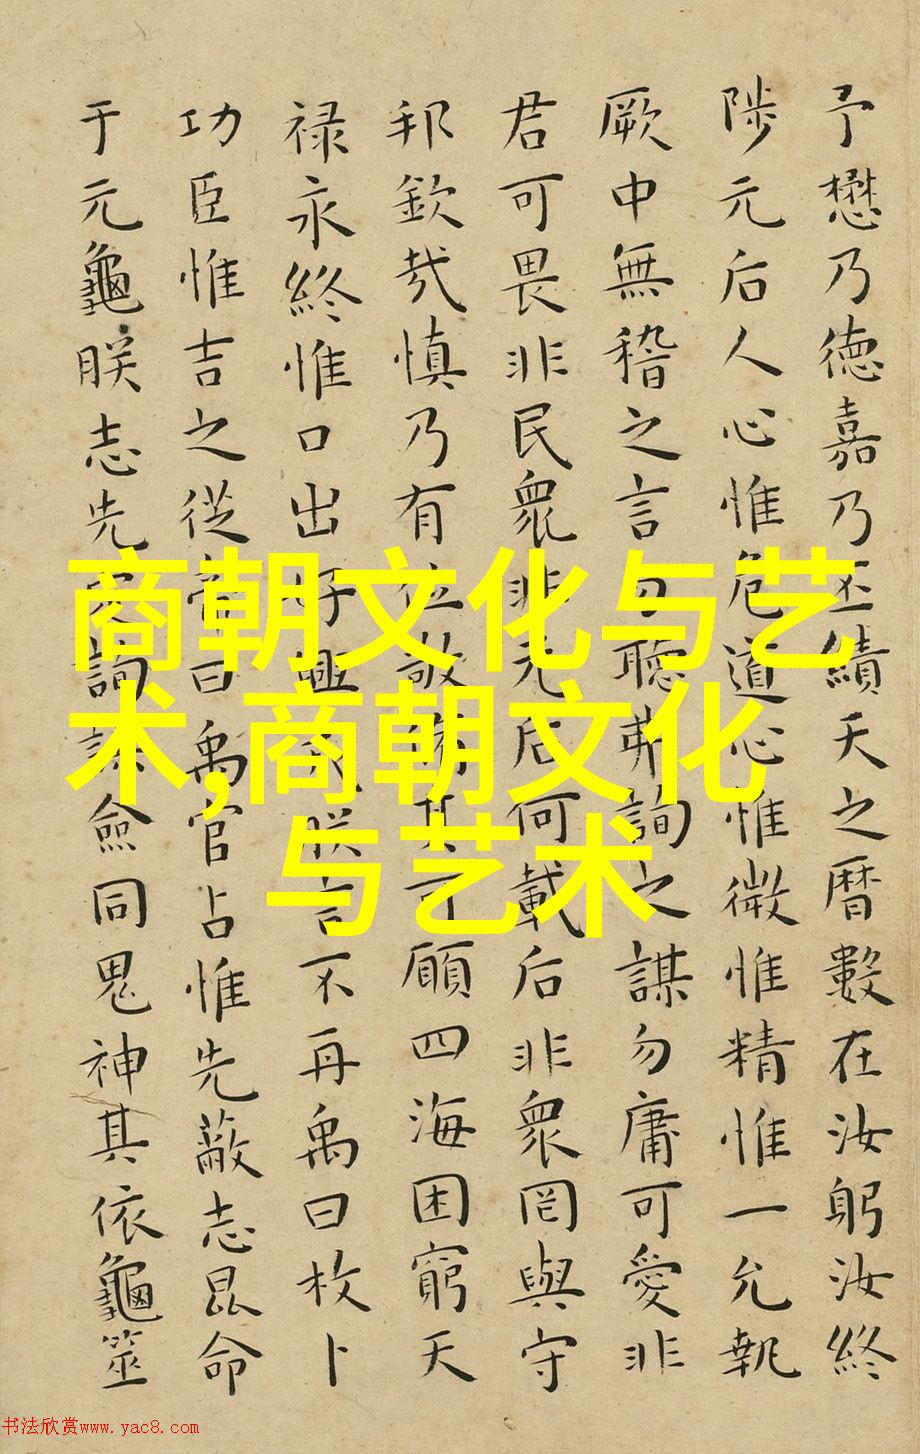 予懋乃德嘉乃丕績天之曆數在汝躬汝終
陟元后人心惟危道心惟微惟精惟一允執
厥中無稽之言勿聽弗詢之謀勿庸可愛非
君可畏非民衆非元后何載后非衆罔與守
邦欽哉慎乃有位敬脩其可願四海困窮天
禄永終惟口出好興戎朕言不再禹曰枚卜
功臣惟吉之從帝曰禹官占惟先蔽志昆命
于元龜朕志先定詢謀僉同鬼神其依龜筮
商朝文化与艺
术,商朝文化
与艺术
书法欣赏www.yac8.com